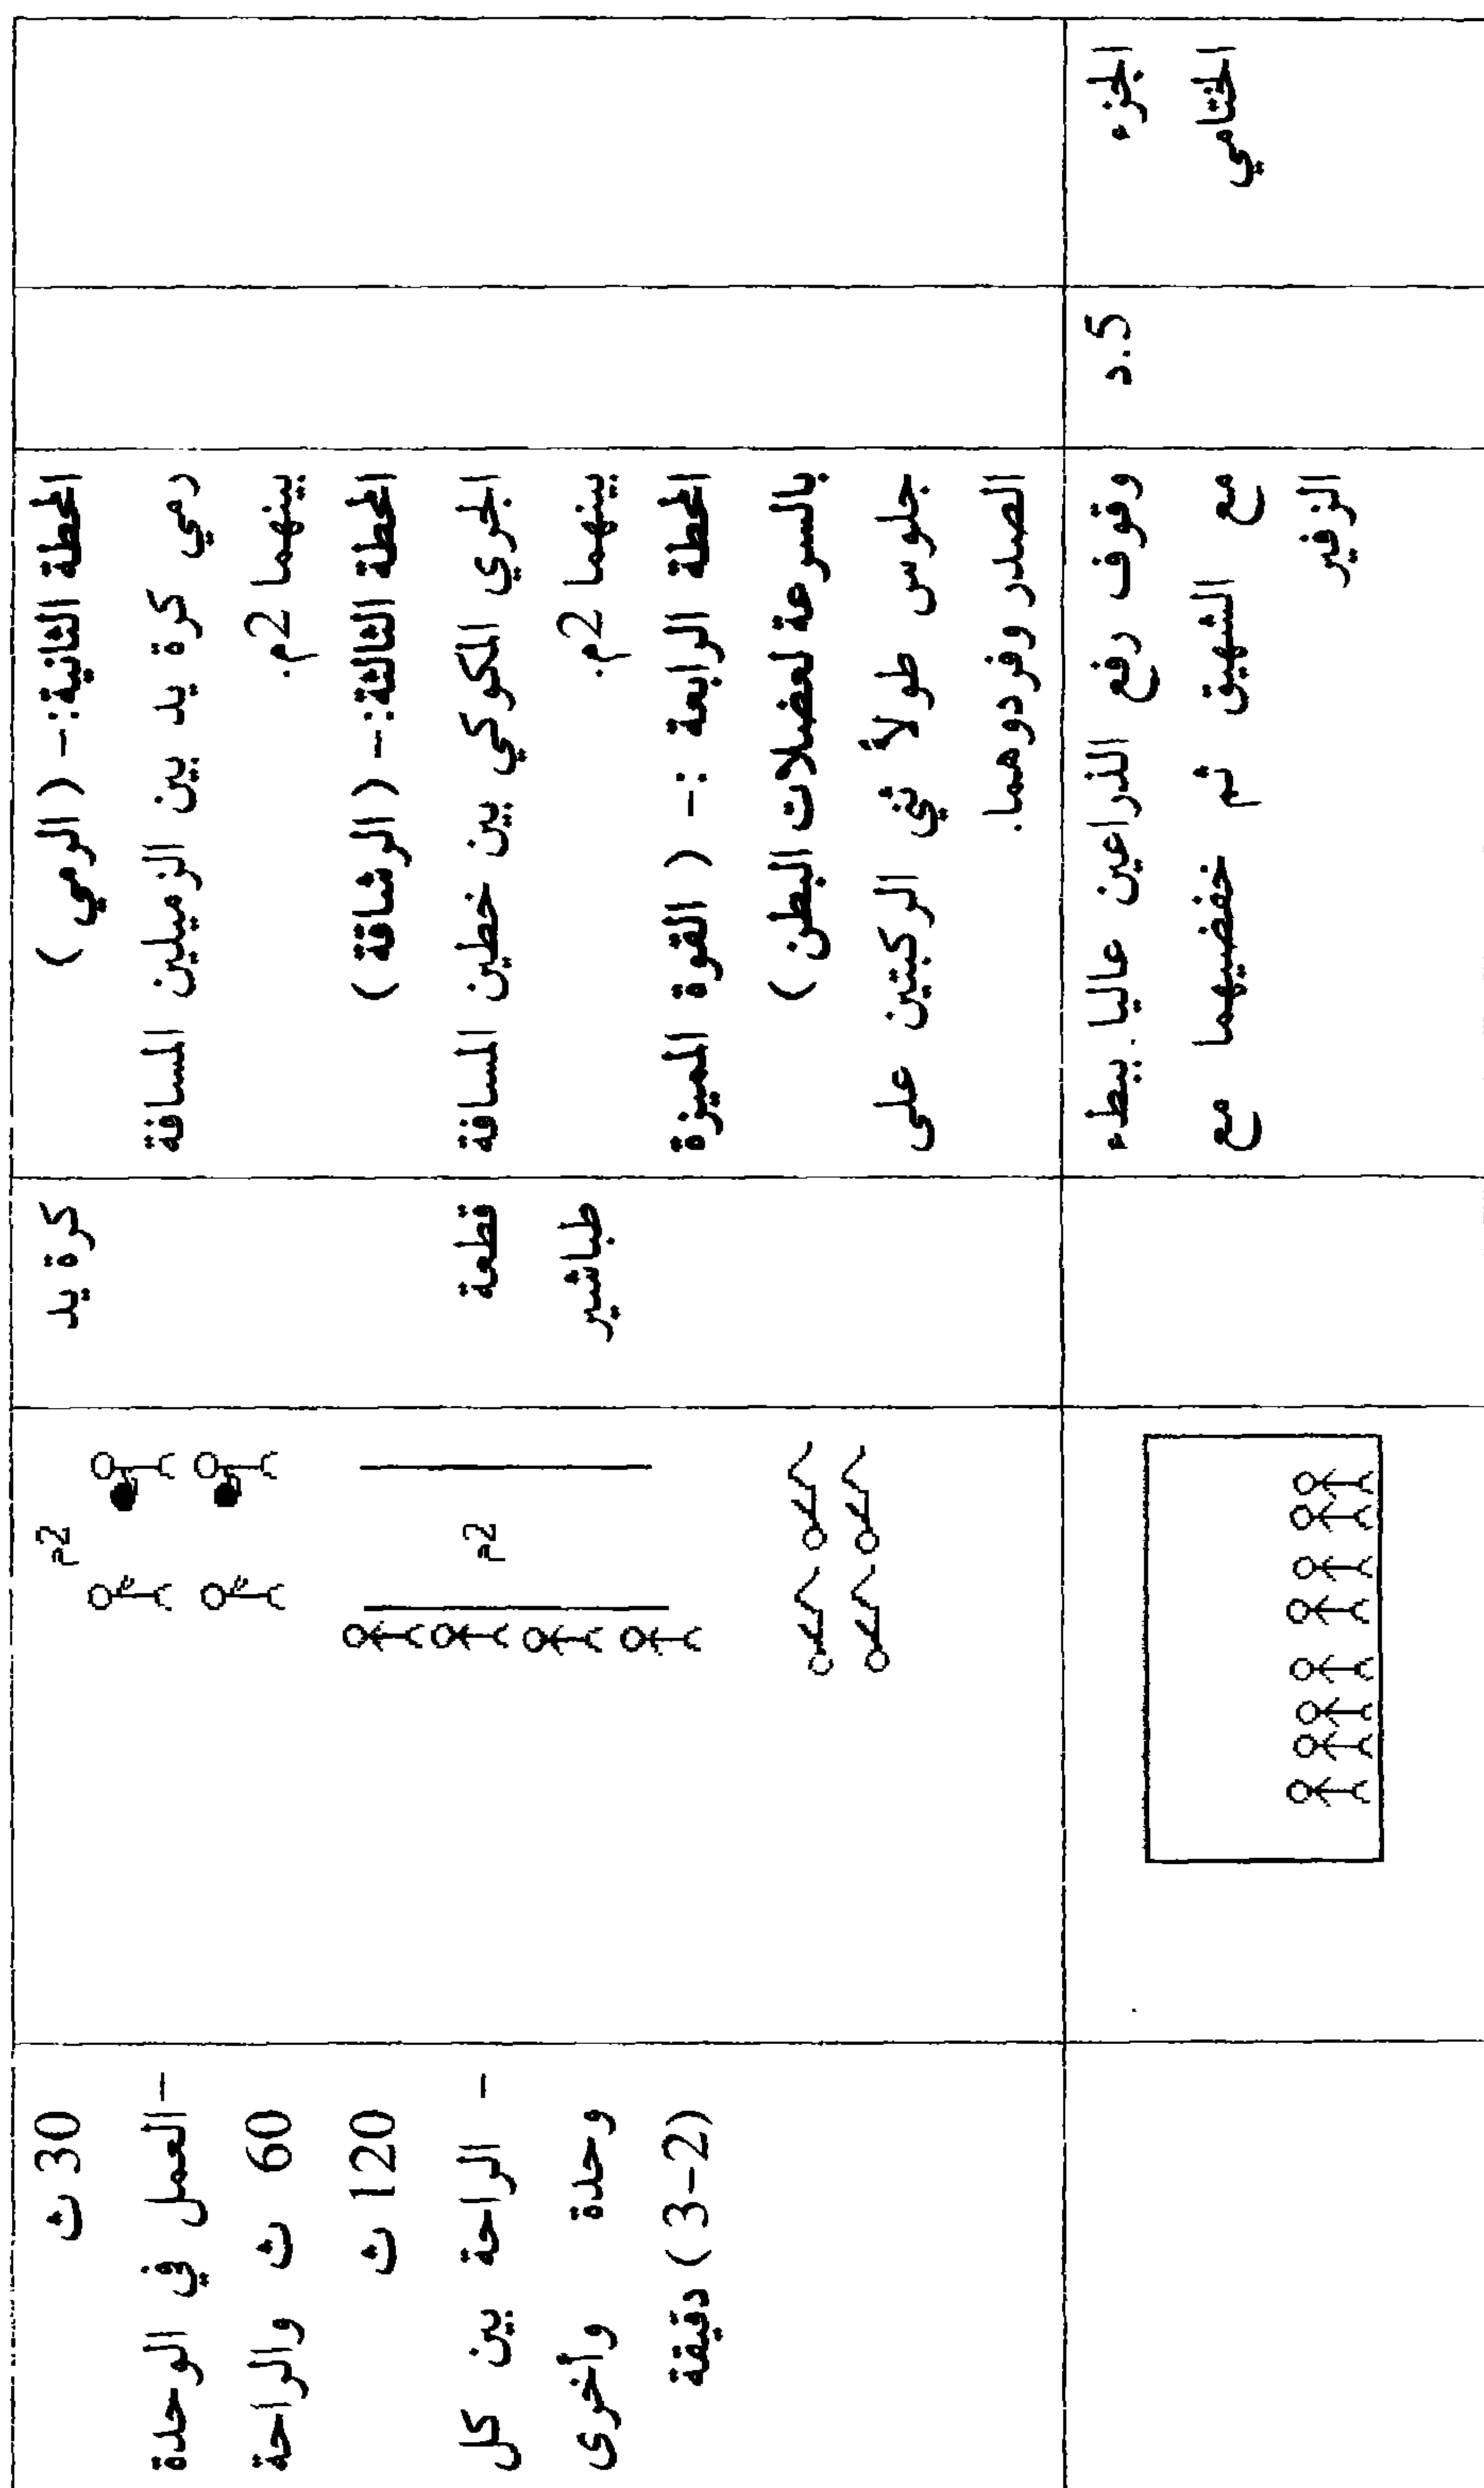 المحطة الثانية:- ( الرمي )
رمي كرة يد بين الزميلين المسافة
بينهما 2م.
المحطة الثالثة:- ( الرشاقة )
الجري المكوكي بين خطين المسافة
بينهما 2م.
المحطة الرابعة :- ( القوة المميزة
بالسرعة لعضلات البطن )
جلوس طولاً ثني الركبتين على
الصدر وفردوهما.
كرة يد
قطعة
طباشير
2م
2م
30 ث
-العمل في الوحدة
60 ث والراحة
120 ث
- الراحة بين كل
وحدة وأخرى
(2-3 ) دقيقة
الجزء
الختامي
5.د
وقوف رفع الذراعين عاليا.ببطء
مع الشهيق ثم خفضيهما مع
الزفير